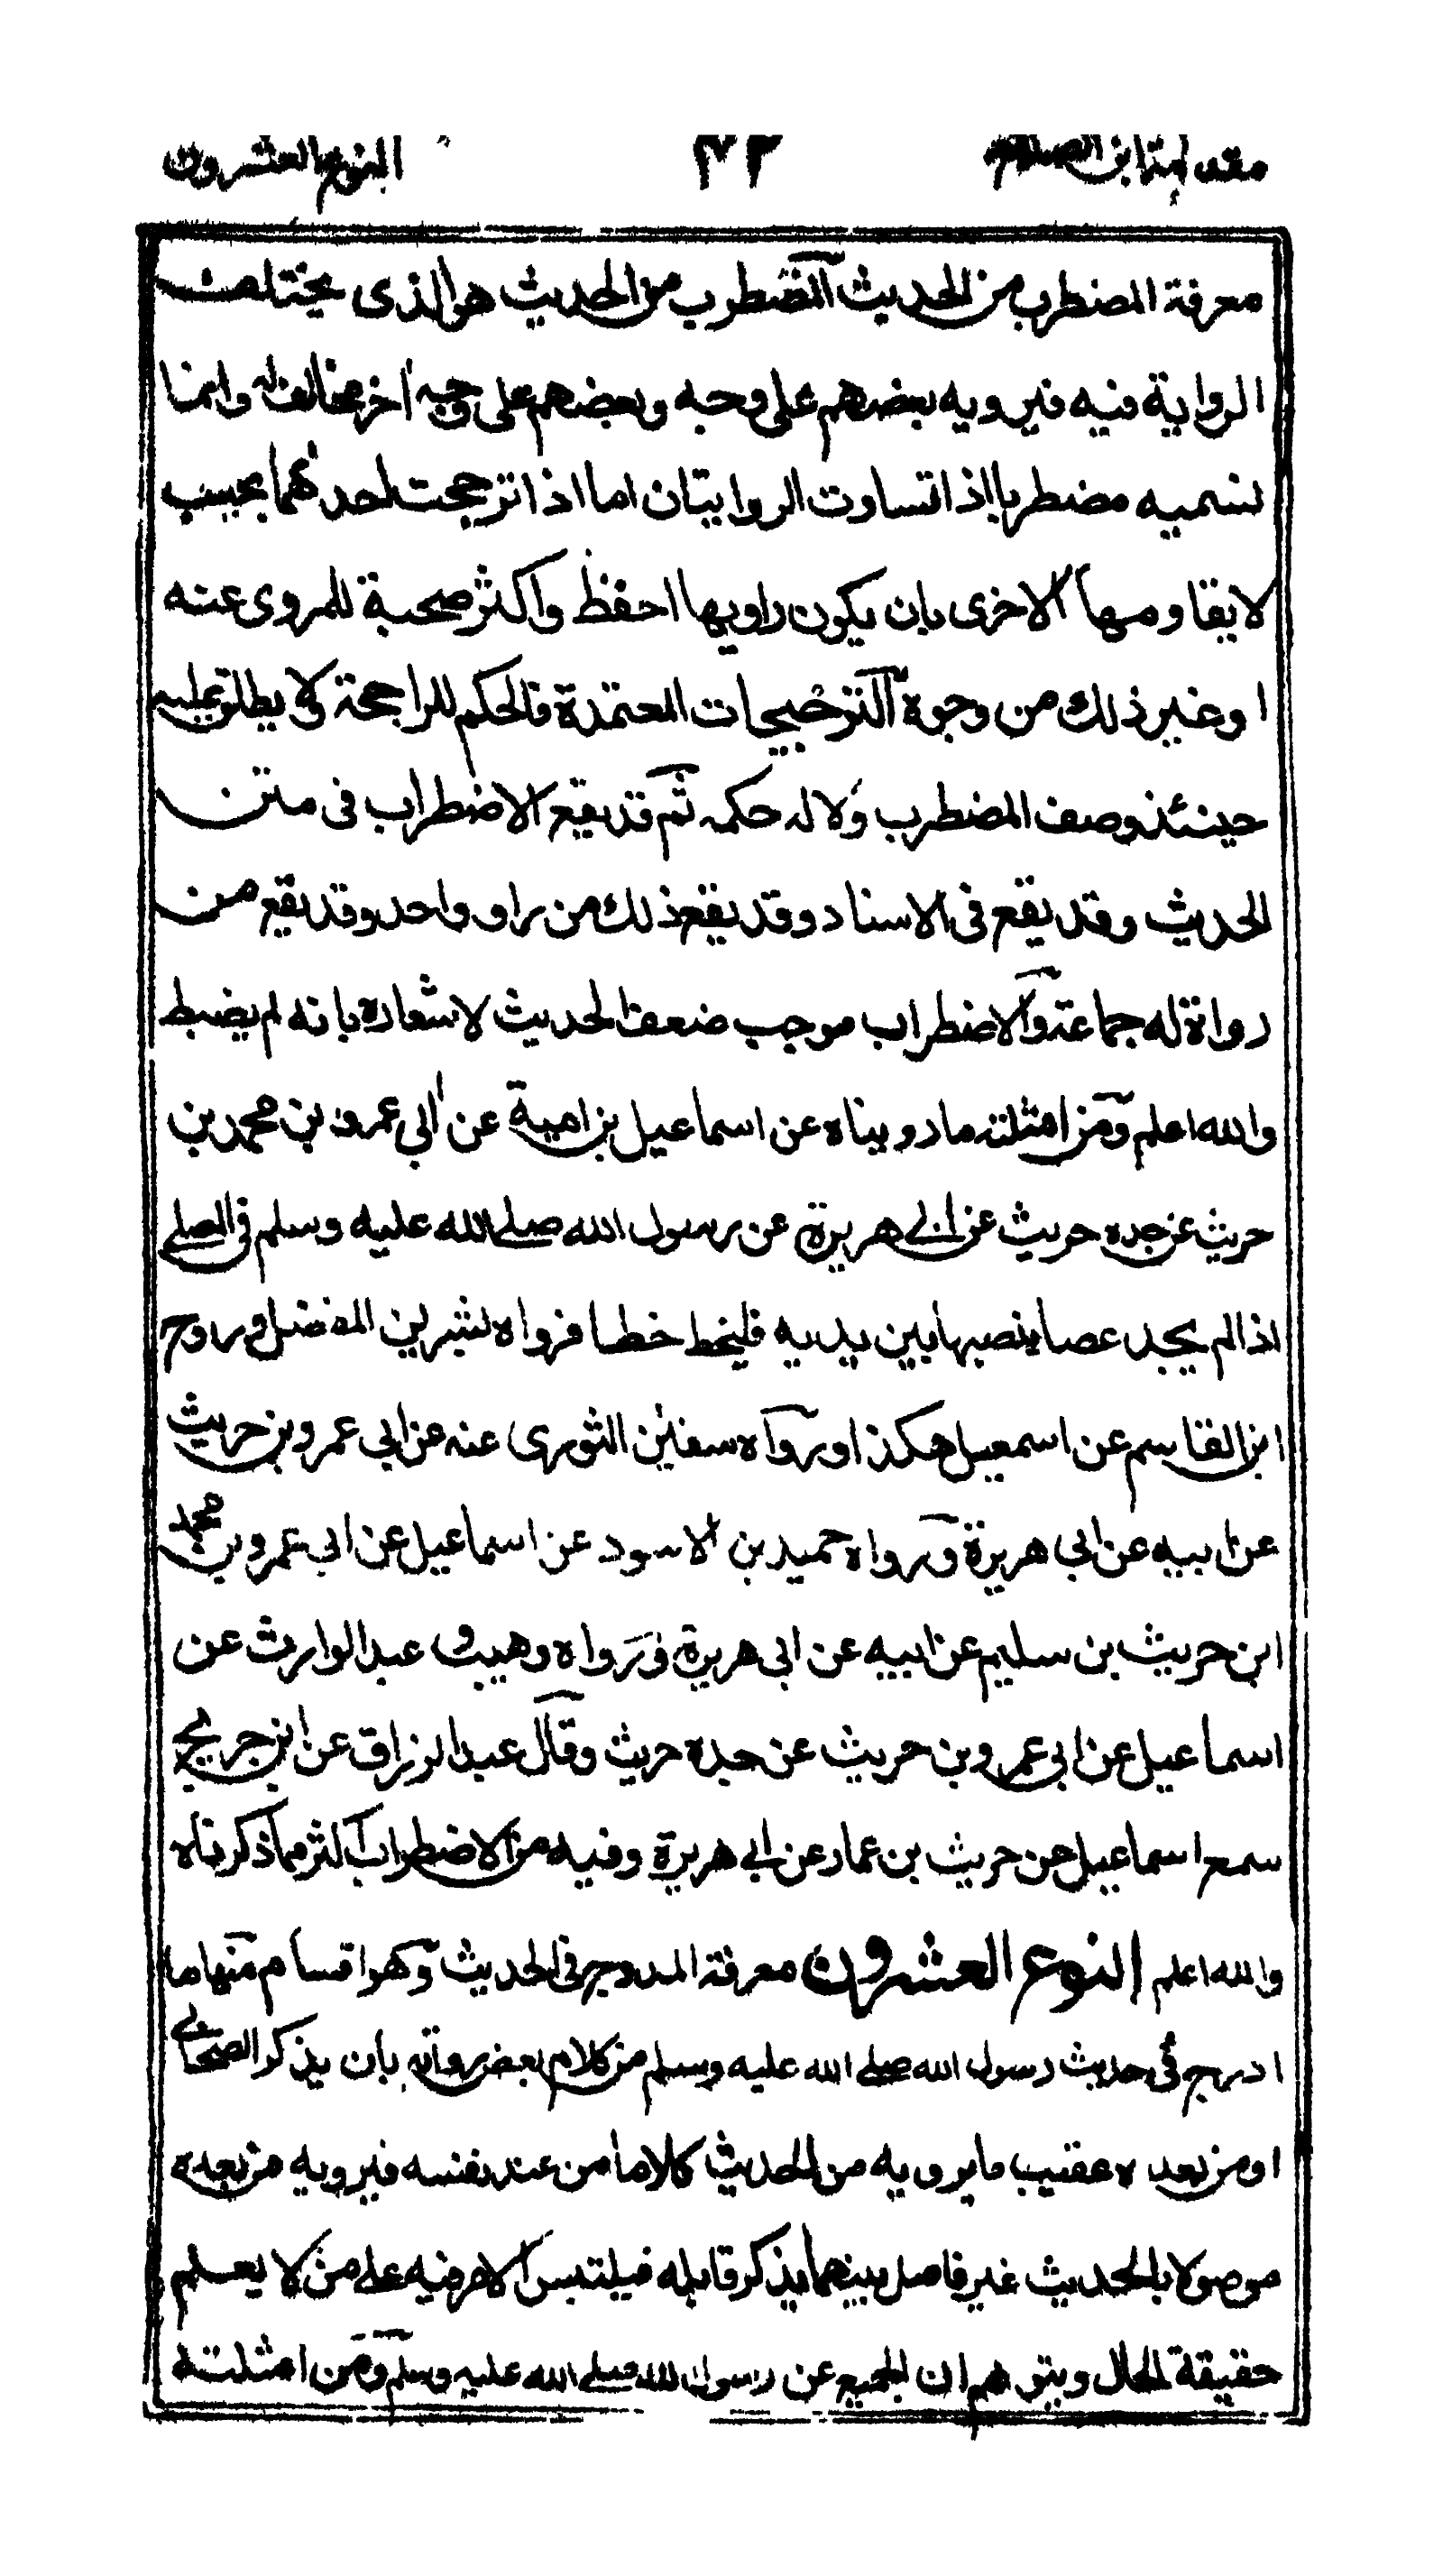 مقدمة ابن الصلاح ٤٣ النوع العشرون
معرفة المضطرب من الحديث المضطرب من الحديث هو الذى يختلف
الرواية فيه فيرويه بعضهم على وجه وبعضهم على وجه اخر مخالف له وانما
نسميه مضطربا اذا تساوت الروايتان اما اذا ترجحت احدهما بحيث
لا يقاومها الاخرى بان يكون راويها احفظ واكثر صحبة للمروى عنه
او غير ذلك من وجوه الترجيحات المعتمدة فالحكم للراجحة ولا يطلق عليه
حينئذ وصف المضطرب ولا له حكمه ثم قد يقع الاضطراب فى متن
الحديث وقد يقع فى الاسناد وقد يقع ذلك من راو واحد وقد يقع من
رواة له جماعة والاضطراب موجب ضعف الحديث لاشعاره بانه لم يضبط
والله اعلم ومن امثلته ما رويناه عن اسماعيل بن امية عن ابى عمرو بن محمد بن
حريث عن جده حريث عن ابى هريرة عن رسول الله صلى الله عليه وسلم فى المصلى
اذا لم يجد عصا ينصبها بين يديه فليخط خطا فرواه بشر بن المفضل وروح
ابن القاسم عن اسمعيل هكذا ورواه سفين الثورى عنه عن ابى عمرو بن حريث
عن ابيه عن ابى هريرة ورواه حميد بن الاسود عن اسماعيل عن ابى عمرو بن محمد
ابن حريث بن سليم عن ابيه عن ابى هريرة ورواه وهيب و عبد الوارث عن
اسماعيل عن ابى عمرو بن حريث عن جده حريث وقال عبد الرزاق عن ابن جريج
سمع اسماعيل عن حريث بن عمار عن ابى هريرة وفيه من الاضطراب اكثر مما ذكرناه
والله اعلم النوع العشرون معرفة المدرج فى الحديث وهو اقسام منها ما
ادرج فى حديث رسول الله صلى الله عليه وسلم من كلام بعض رواته بان يذكر الصحابى
او من بعده عقيب ما يرويه من الحديث كلاما من عند نفسه فيرويه من بعده
موصولا بالحديث غير فاصل بينهما بذكر قايله فيلتبس الامر فيه على من لا يعلم
حقيقة الحال ويتوهم ان الجميع عن رسول الله صلى الله عليه وسلم ومن امثلته